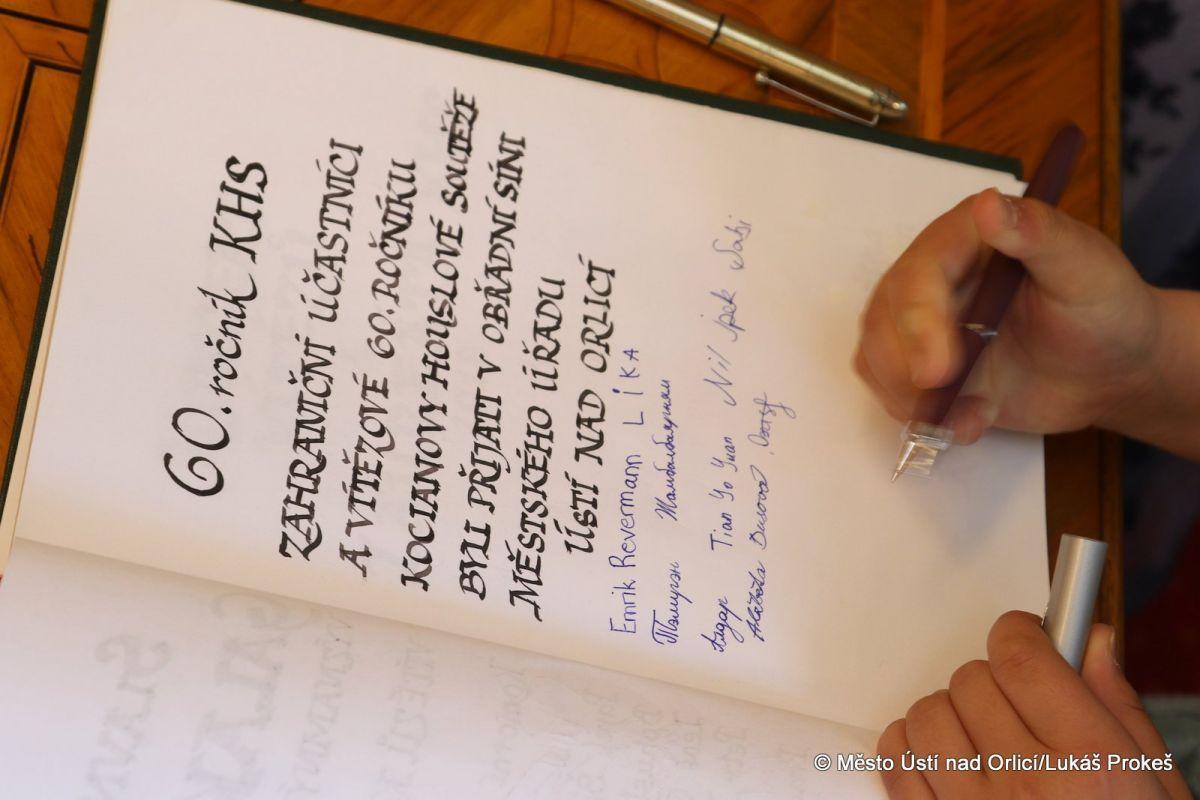 60. ročník KHS
ZAHRANIČNÍ ÚČASTNÍCI
A VÍTĚZOVÉ 60. ROČNÍKU
KOCIANOVY HOUSLOVÉ SOUTĚŽE
BYLI PŘIJATI V OBŘADNÍ SÍNI
MĚSTSKÉHO ÚŘADU
ÚSTÍ NAD ORLICÍ
Emrik Revermann LiKA
Тэмүгэн
Аидар Tian Yo Yuan Nil Ipek
Alžběta Dusová
© Město Ústí nad Orlicí/Lukáš Prokeš